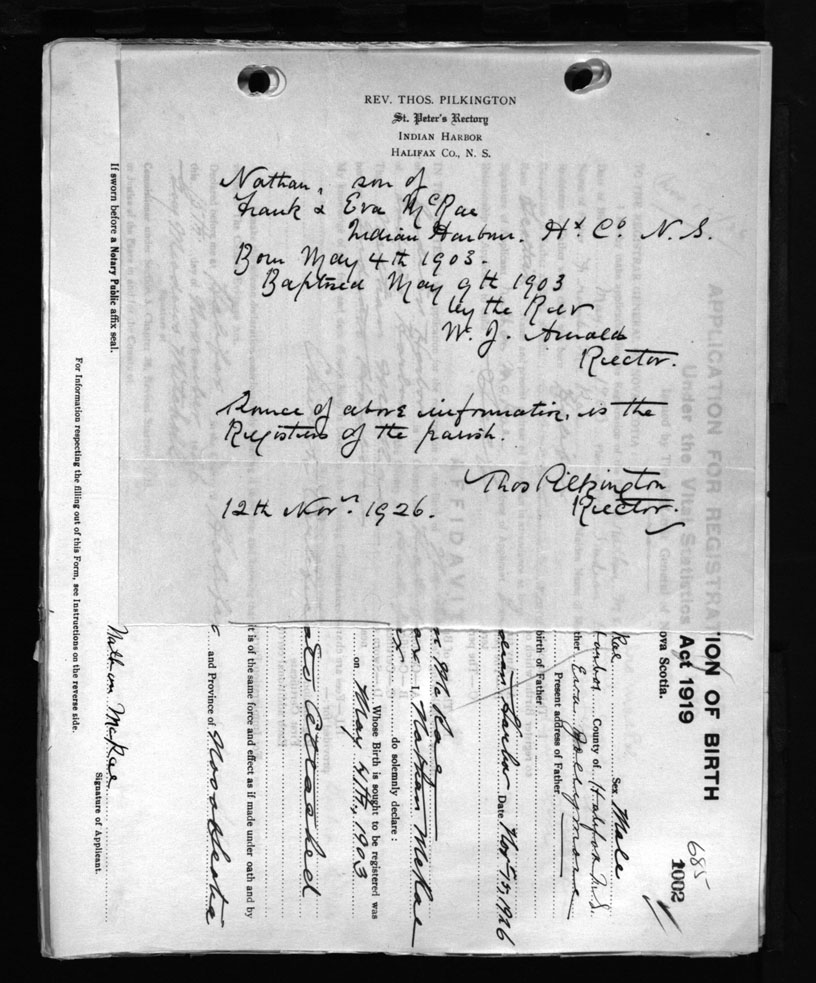 REV. THOS. PILKINGTON
St. Peter's Rectory
INDIAN HARBOR
HALIFAX CO., N. S.
Nathan, son of
Frank & Eva McRae
Indian Harbour. Hx Co N.S.
Born May 4th 1903.
Baptised May 9th 1903
by the Rev
W. J. Arnold
Rector.
Source of above information, is the
Registers of the parish.
Thos Pilkington
Rector.
12th Novr. 1926.
ION OF BIRTH
Act 1919
ova Scotia.
685
1002
Rae Sex Male
Harbor County of Halifax N.S.
ther Eva
Present address of Father
birth of Father
dian Harbor Date Nov 15, 1926
n McRae
I, Nathan McRae
do solemnly declare :
Whose Birth is sought to be registered was
on May 4th, 1903
Attached
it is of the same force and effect as if made under oath and by
and Province of Nova Scotia
Nathan McRae
Signature of Applicant.
If sworn before a Notary Public affix seal.
For Information respecting the filling out of this Form, see Instructions on the reverse side.